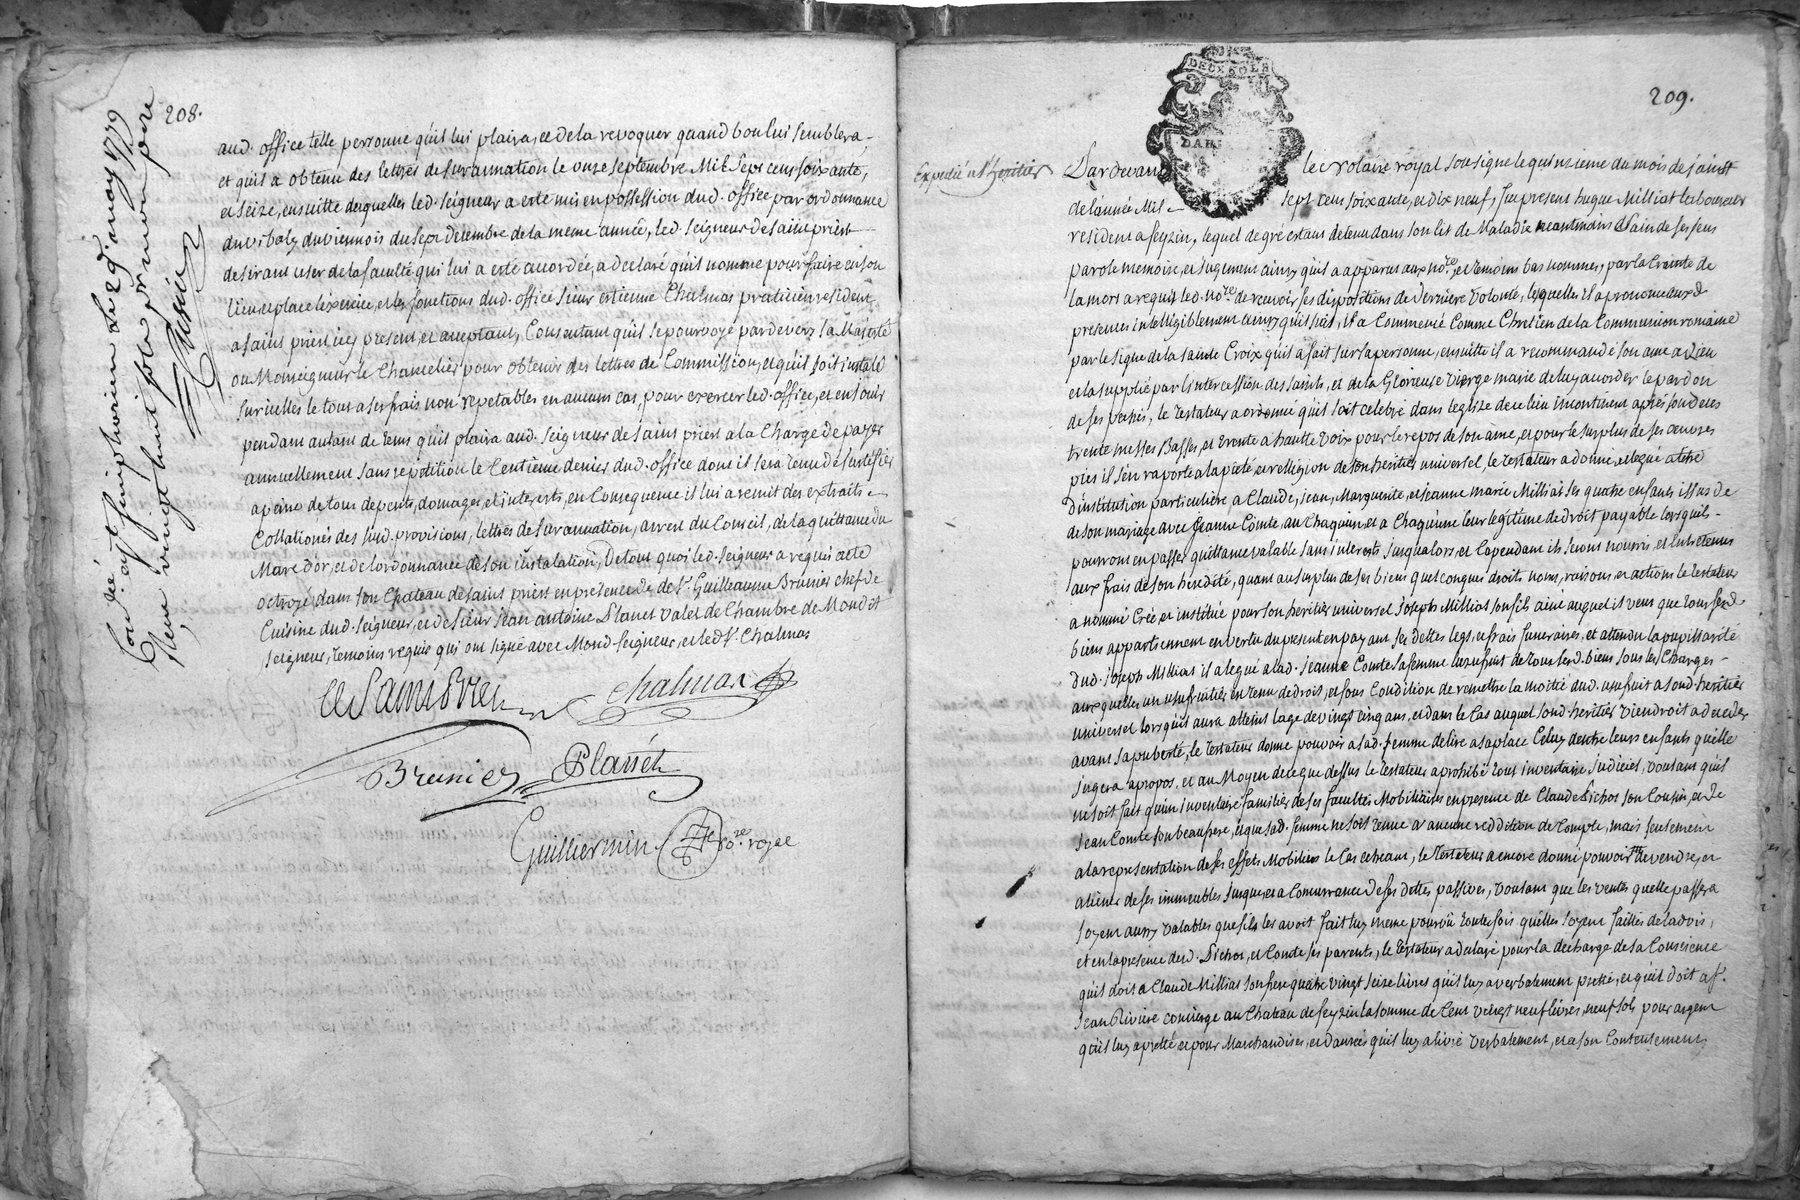 208.
Con.lé a st simphorien le 29e may 1779
Reçu vingt huit sols
aud. office telle personne qu'il lui plaira, et de la revoquer quand bon lui semblera,
et qu'il a obtenu des lettres de surannation le onze septembre mil sept cent soixante,
et seize, ensuitte desquelles led. seigneur a esté mis en possession dud. office par ordonnance
du vibaly du viennois du sept decembre de la meme année, led. seigneur de saint priest
desirant user de la faculté qui lui a esté accordée, a declaré qu'il nomme pour faire en son
lieu et place l'exercice, et les fonctions dud. office sieur estienne Chalmas praticien resident
a saint priest icy present, et acceptant, Consentant qu'il se pourvoye pardevers sa Majesté
ou Monseigneur le Chancelier pour obtenir des lettres de Commission, et qu'il soit installé
sur icelles le tout a ses frais non repetables en aucun cas, pour exercer led. office, et en jouir
pendant autant de tems qu'il plaira aud. seigneur de saint priest a la Charge de payer
annuellement sans repetition le Centieme denier dud. office dont il sera tenu de justifier
a peine de tous depents, domages, et interests, en Consequence il lui a remit des extraits
Collationés des susd. provisions, lettres de surannation, arrest du Conseil, de la quittance du
Marc d'or, et de l'ordonnance de son installation, De tout quoi led. seigneur a requis acte
octroyé dans son Chateau de saint priest en presence de sr. Guilleaume Brunier chef de
Cuisine dud. seigneur, et de sieur jean antoine Planet valet de Chambre de Mondit
seigneur, temoins requis qui ont signé avec Mond. seigneur, et led. sr. Chalmas
de Saint Priest Chalmas
Brunier Planet
Guilliermin no.re royal
209.
DEUX SOLS
DAR
Expedié a l'heritier
Pardevant le Notaire royal soussigné le quinzieme du mois de
de l'année Mil sept cent soixante, et dix neuf, fut present hugue Milliat laboureur
resident a feyzin, lequel de gré estant detenu dans son lit de Maladie neantmoins sain de ses sens
parole memoire, et jugement ainsy qu'il a apparu aux no.re, et temoins bas nommés, par la Crainte de
la mort a requis led. no.re de recevoir ses dispositions de derniere volonté, lesquelles il a prononcé aux d.
presents intelligiblement ainsy qu'il suit, il a Commencé Comme Chretien de la Communion romaine
par le signe de la sainte Croix qu'il a fait sur sa personne, ensuitte il a recommandé son ame a Dieu
et la supplié par l'intercession des saints, et de la Glorieuse vierge marie de luy accorder le pardon
de ses pechés, le testateur a ordonné qu'il soit celebré dans leglize de ce lieu incontinent après son deces
trente messes Basses, et trente a hautte voix pour le repos de son ame, et pour le surplus de ses oeuvres
pies il s'en raporte a la pieté et relligion de son heritier universel, le testateur a donné, et legué a titre
d'institution particuliere, a Claude, jean, Marguerite, et jeanne marie Milliat ses quatre enfants issus de
de son mariage avec Jeanne Comte, au Chaquun, et a Chaquune leur legitime de droit payable lorsqu'ils
pourront en passer quittance valable sans interests jusqu'alors, et Cependant ils seront nourris, et entretenus
aux frais de son heredité, quant au surplus de ses biens quelconques droits noms, raisons, et actions le testateur
a nommé Créé et institué pour son heritier universel Joseph Milliat son fils ainé auquel il veut que tous sesd.
biens appartiennent en vertu du present en payant ses dettes legs, et frais funeraires, et attendu la pupillarité
dud. Joseph Milliat il a legué a lad. jeanne Comte sa femme l'usufruit de tous sesd. biens sous les Charges
auxquelles un usufruitier est tenu de droit, et sous Condition de remettre la moitié dud. usufruit a sond. heritier
universel lorsqu'il aura atteint lage de vingt cinq ans, et dans le Cas auquel sond. heritier viendroit a deceder
avant sa puberté, le testateur donne pouvoir a sad. femme delire a sa place Celuy dentre leurs enfants qu'elle
jugera apropos, et au Moyen de ce que dessus le testateur a prohibé tout inventaire judiciel, voulant qu'il
ne soit fait qu'un inventaire familier de ses facultés Mobiliaires en presence de Claude Pichot son Cousin, et de
Jean Comte son beaupere, et que sad. femme ne soit tenue a aucune reddition de Compte, mais seulement
a la representation de ses effets Mobiliers le Cas echeant, le testateur a encore donné pouvoir de vendre, et
aliener de ses immeubles jusques a Concurrance de ses dettes passives, voulant que les ventes quelle passera
soyent aussy valables que s'il les avoit fait luy meme pourvû toutefois quelles soyent faittes de l'advis,
et en la presence desd. Pichot, et Comte ses parents, le testateur a declaré pour la decharge de sa Conscience
qu'il doit a Claude Milliat son frere quatre vingt seize livres qu'il luy a verbalement pretté, et qu'il doit a s.
Jean Riviere concierge au Chateau de feyzin la somme de Cent vingt neuf livres, neuf sols pour argent
qu'il luy a pretté et pour Marchandises, et danrées qu'il luy a livré verbalement, et a son Contentement,